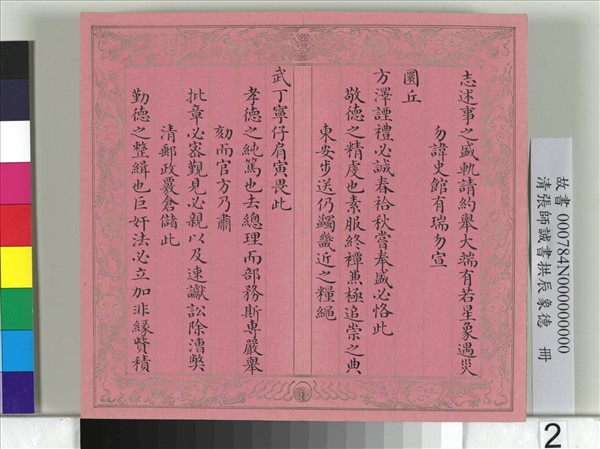 志述事之盛軌請約舉大端有若星象遇災
勿諱史館有瑞勿宣
圜丘
方澤謹禮必誠春祫秋嘗奉盛必恪此
敬德之精虔也素服終禫熏極追崇之典
東安步送仍蠲畿近之糧繩
武丁寧仔肩寅畏此
孝德之純篤也去總理而部務斯專嚴舉
劾而官方乃肅
批章必審覲見必親以及速讞訟除漕獘
清郵政覈倉儲此
勤德之整緝也巨奸法必立加非緣贇積
故書 000784N000000000
清張師誠書拱辰象德 冊
2